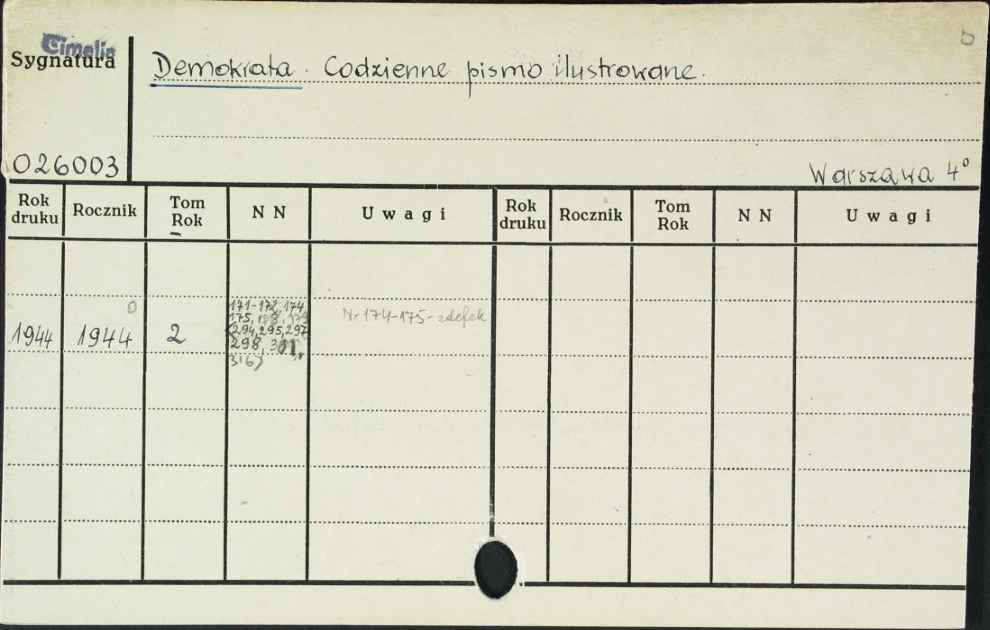 Cimelia
Sygnatura
Demokrata. Codzienne pismo ilustrowane.
026003
Warszawa 4°
Rok druku Rocznik Tom Rok N N U w a g i Rok druku Rocznik Tom Rok N N U w a g i
1944 1944 2
171-172, 174
175,
(294, 295, 297
298, 301,
316)
Nr 174-175-defek